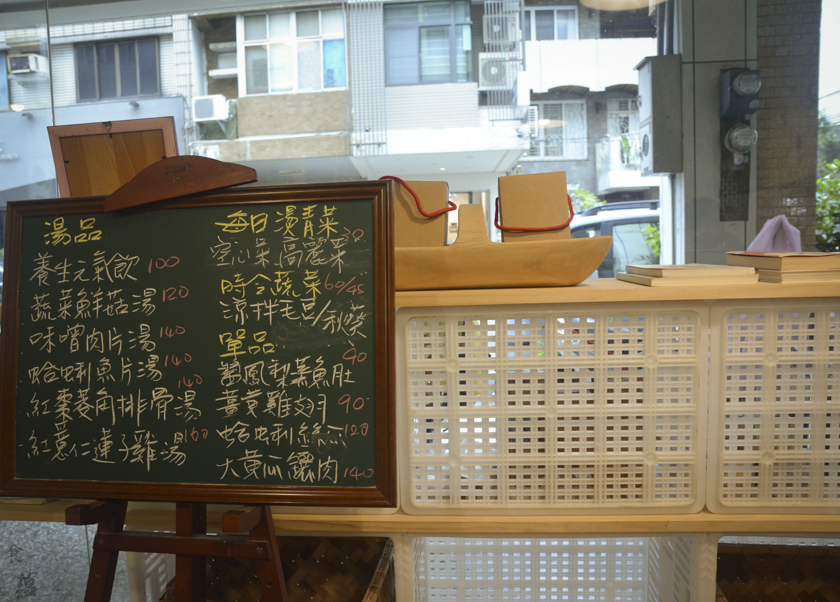 湯品
養生元氣飲 100
蔬菜鮮菇湯 120
味噌肉片湯 140
蛤蜊魚片湯 140
紅棗菱角排骨湯 140
紅薏仁蓮子雞湯 160
每日燙青菜
空心菜.高麗菜 30
時令蔬菜
涼拌毛豆/秋葵 60/45
單品
鳳梨蒸魚肚 90
薑黃雞翅 90
蛤蜊絲瓜 120
大黃瓜鑲肉 140